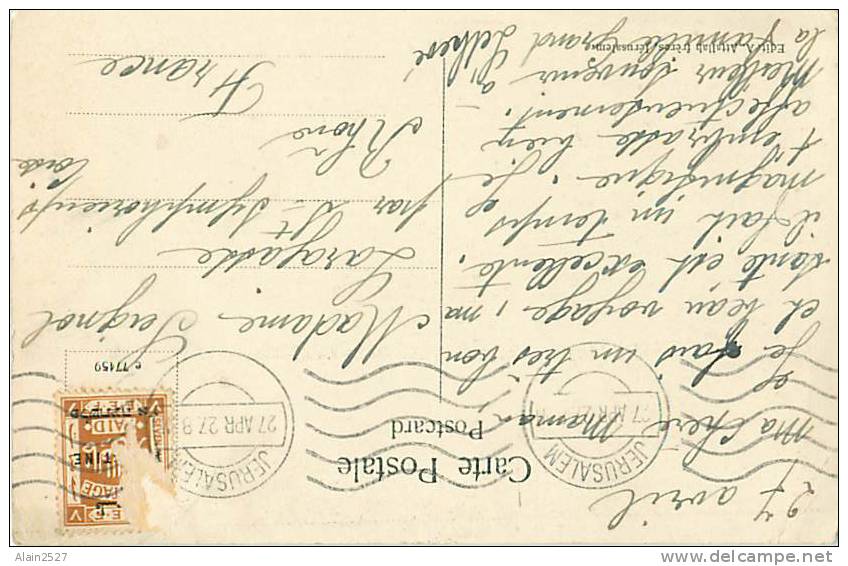 Carte Postale
Postcard
27 avril
ma chère Maman
Je fais un très bon
et beau voyage, ma
santé est excellente,
il fait un temps
magnifique. Je
t'embrasse bien
affectueusement.
Meilleur souvenir à
la famille grand
Madame
Larajasse
par St Symphorien s/
Coise
Rhône
France
Edit. A. Attallah frères, Jerusalem
c 77159
JERUSALEM
27 APR 27
JERUSALEM
27 APR 27
PAID
Alain2527
delcampe.net